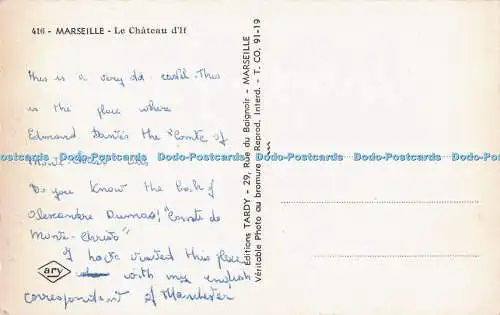 416 - MARSEILLE - Le Château d'If
this is a very old castel. This
is the place where
Edmond Dantès the "Comte of
Monte-Christo" was
Do you know the book of
Alexandre Dumas; "Comte de
Monte-Christo"
I have visited this place
with my english
correspondant of Manchester
ary
Editions TARDY - 29, Rue du Baignoir - MARSEILLE
Véritable Photo au bromure - Reprod. Interd. - T. CO. 91-19
Dodo-Postcards Dodo-Postcards Dodo-Postcards Dodo-Postcards Dodo-Postcards
Dodo-Postcards Dodo-Postcards Dodo-Postcards Dodo-Postcards